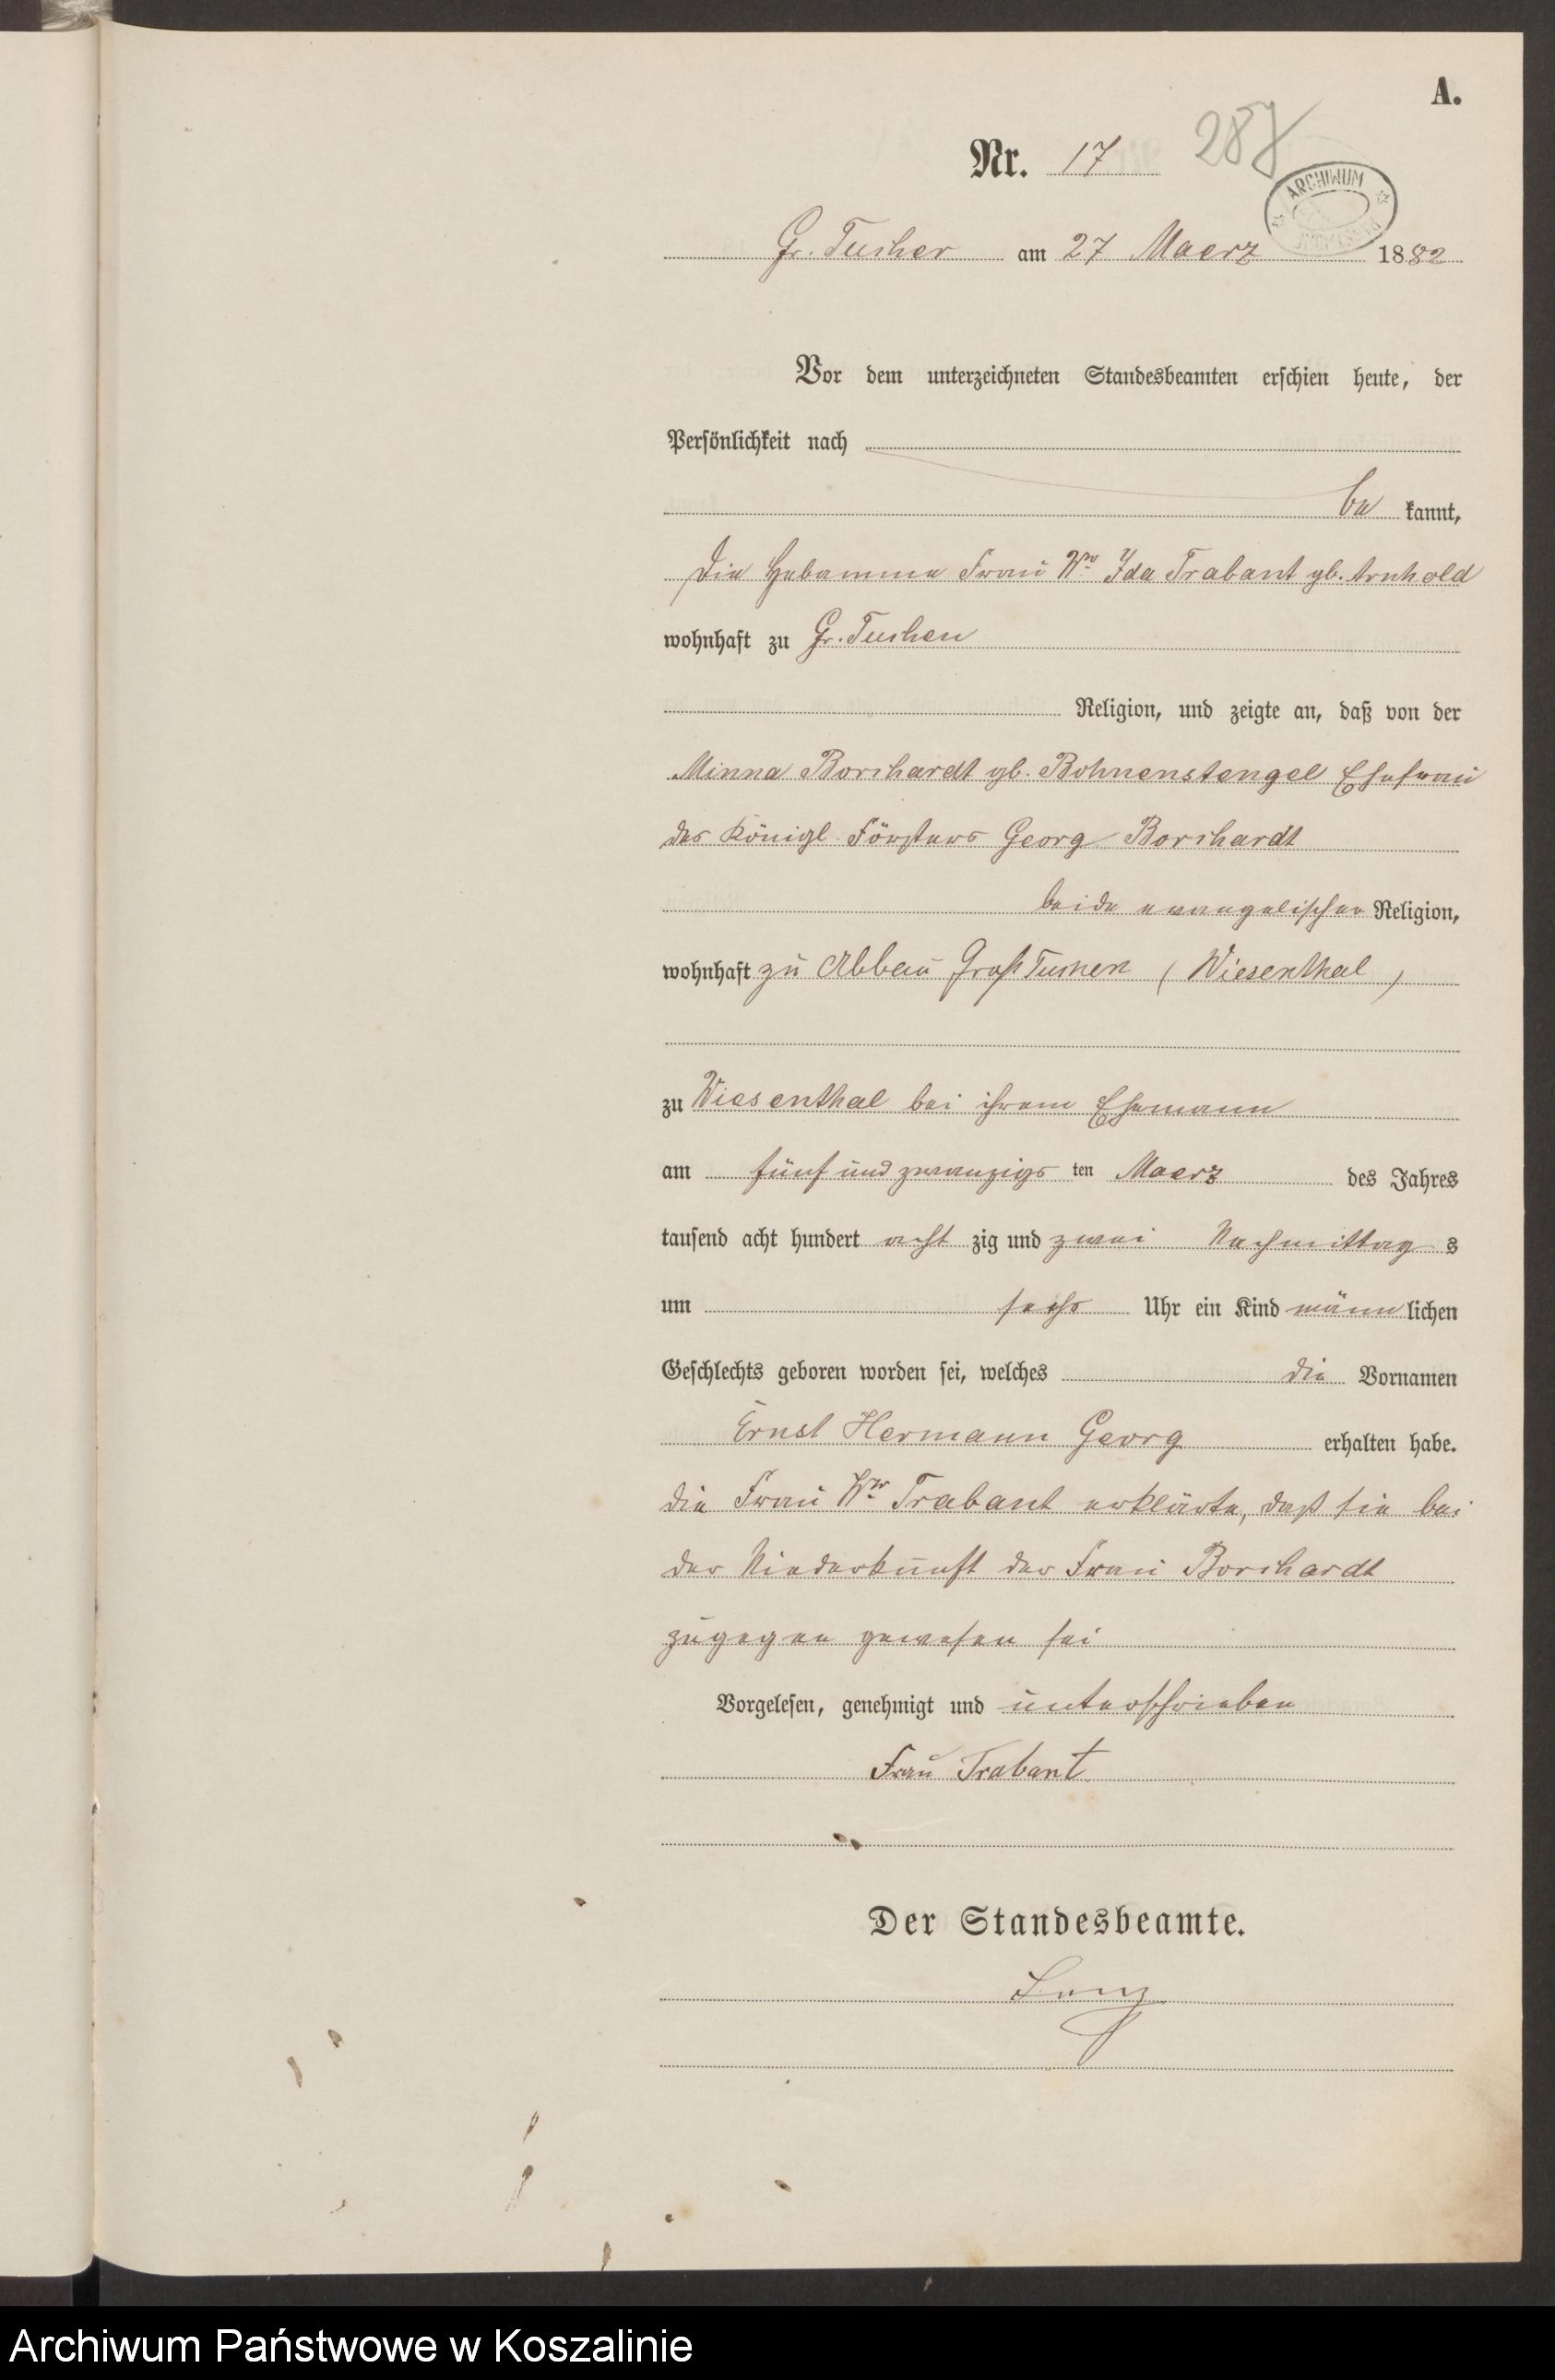 A.
Nr. 17
287
ARCHIWUM
Gr. Tuchen am 27 Maerz 1882
Vor dem unterzeichneten Standesbeamten erschien heute, der
Persönlichkeit nach
be kannt,
die Hebamme Frau Ww Ida Trabant gb. Arnhold
wohnhaft zu Gr. Tuchen
Religion, und zeigte an, daß von der
Minna Borchardt gb. Bohnenstengel Ehefrau
des Königl Försters Georg Borchardt
beide evangelischer Religion,
wohnhaft zu Abbau Groß Tuchen (Wiesenthal)
zu Wiesenthal bei ihrem Ehemann
am fünf und zwanzigs ten Maerz des Jahres
tausend acht hundert acht zig und zwei Nachmittag s
um sechs Uhr ein Kind männ lichen
Geschlechts geboren worden sei, welches die Vornamen
Ernst Hermann Georg erhalten habe.
die Frau Ww Trabant erklärte, daß sie bei
der Niederkunft der Frau Borchardt
zugegen gewesen sei
Vorgelesen, genehmigt und unterschrieben
Frau Trabant
Der Standesbeamte.
Archiwum Państwowe w Koszalinie